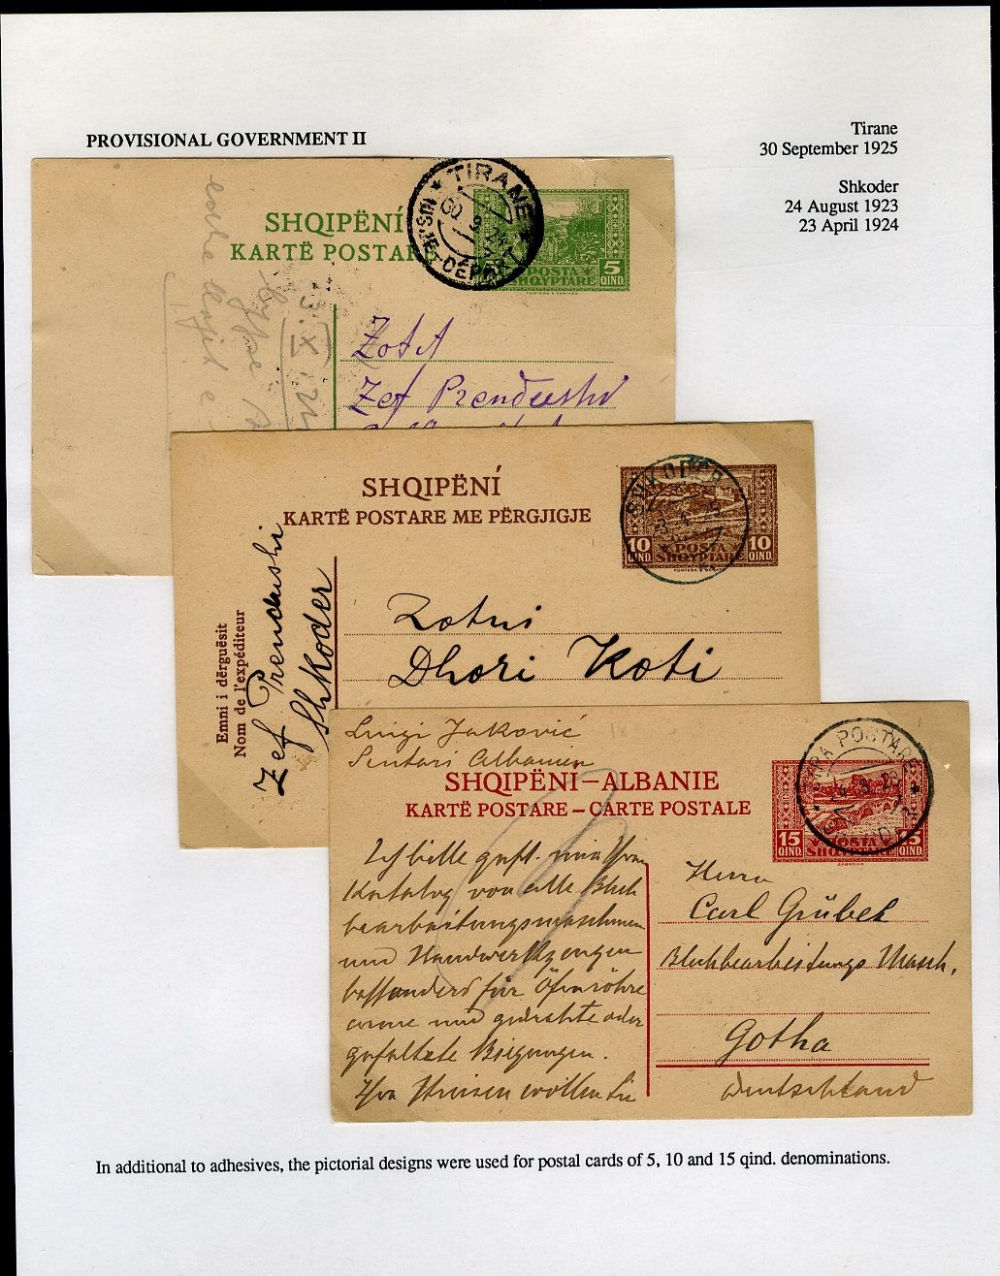 PROVISIONAL GOVERNMENT II
Tirane
30 September 1925
Shkoder
24 August 1923
23 April 1924
TIRANE
DEPART
SHQIPËNÍ
KARTË POSTAR
POSTA
SHQYPTARE
5
QIND.
Zotit
Zef Prendushi
SHQIPËNÍ
KARTË POSTARE ME PËRGJIGJE
SHKODER
10
QIND.
POSTA
SHQYPTARE
10
QIND.
Emni i dërguësit
Nom de l'expéditeur
Zef Prendushi
Shkoder
Zotni
Dhori Koti
Luigi Jaković
Scutari Albanien
SHQIPËNI—ALBANIE
KARTË POSTARE – CARTE POSTALE
POSTARE
15
QIND.
POSTA
SHQYPTARE
15
QIND.
Ich bitte
Katalog von alle Blech
bearbeitungsmaschinen
und Handwerkzeugen
für
und oder
Biegungen.
Herrn
Carl Grübel
Blechbearbeitungs Masch.
Gotha
Deutschland
In additional to adhesives, the pictorial designs were used for postal cards of 5, 10 and 15 qind. denominations.